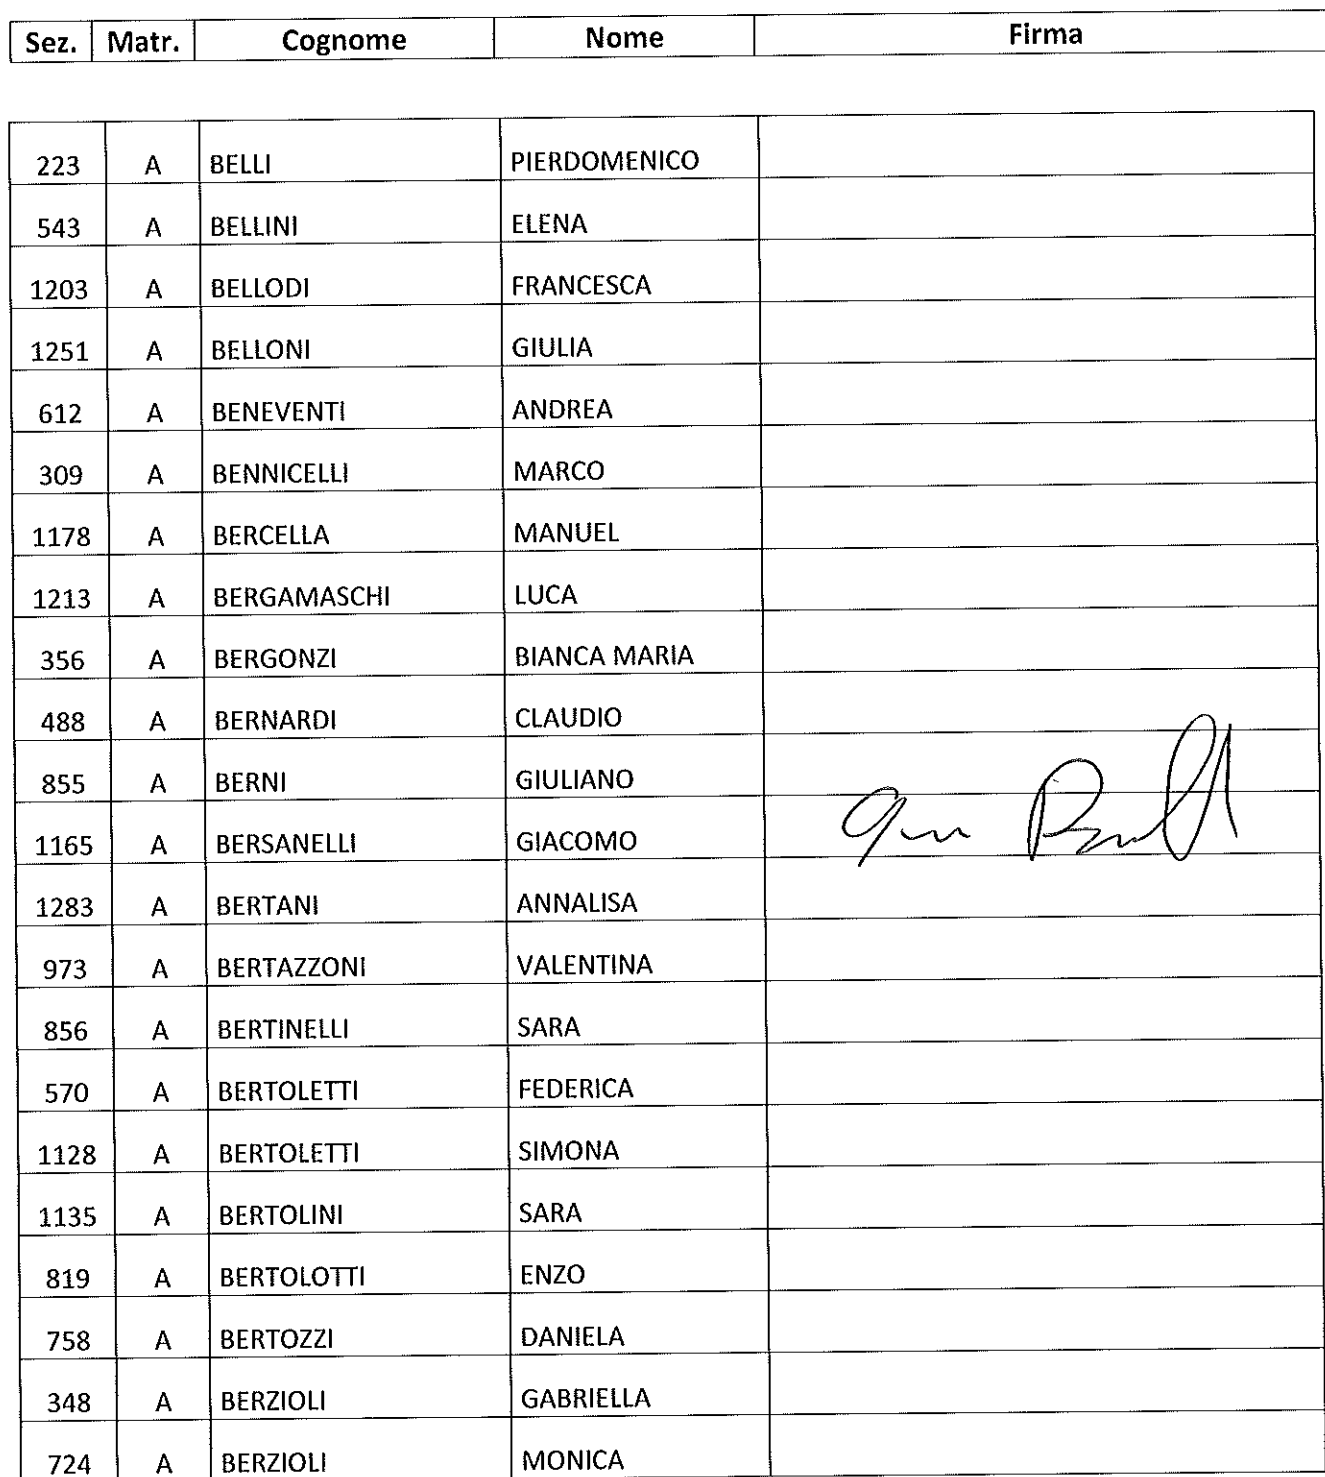 Sez. Matr. Cognome Nome Firma
223 A BELLI PIERDOMENICO
543 A BELLINI ELENA
1203 A BELLODI FRANCESCA
1251 A BELLONI GIULIA
612 A BENEVENTI ANDREA
309 A BENNICELLI MARCO
1178 A BERCELLA MANUEL
1213 A BERGAMASCHI LUCA
356 A BERGONZI BIANCA MARIA
488 A BERNARDI CLAUDIO
855 A BERNI GIULIANO
1165 A BERSANELLI GIACOMO
1283 A BERTANI ANNALISA
973 A BERTAZZONI VALENTINA
856 A BERTINELLI SARA
570 A BERTOLETTI FEDERICA
1128 A BERTOLETTI SIMONA
1135 A BERTOLINI SARA
819 A BERTOLOTTI ENZO
758 A BERTOZZI DANIELA
348 A BERZIOLI GABRIELLA
724 A BERZIOLI MONICA